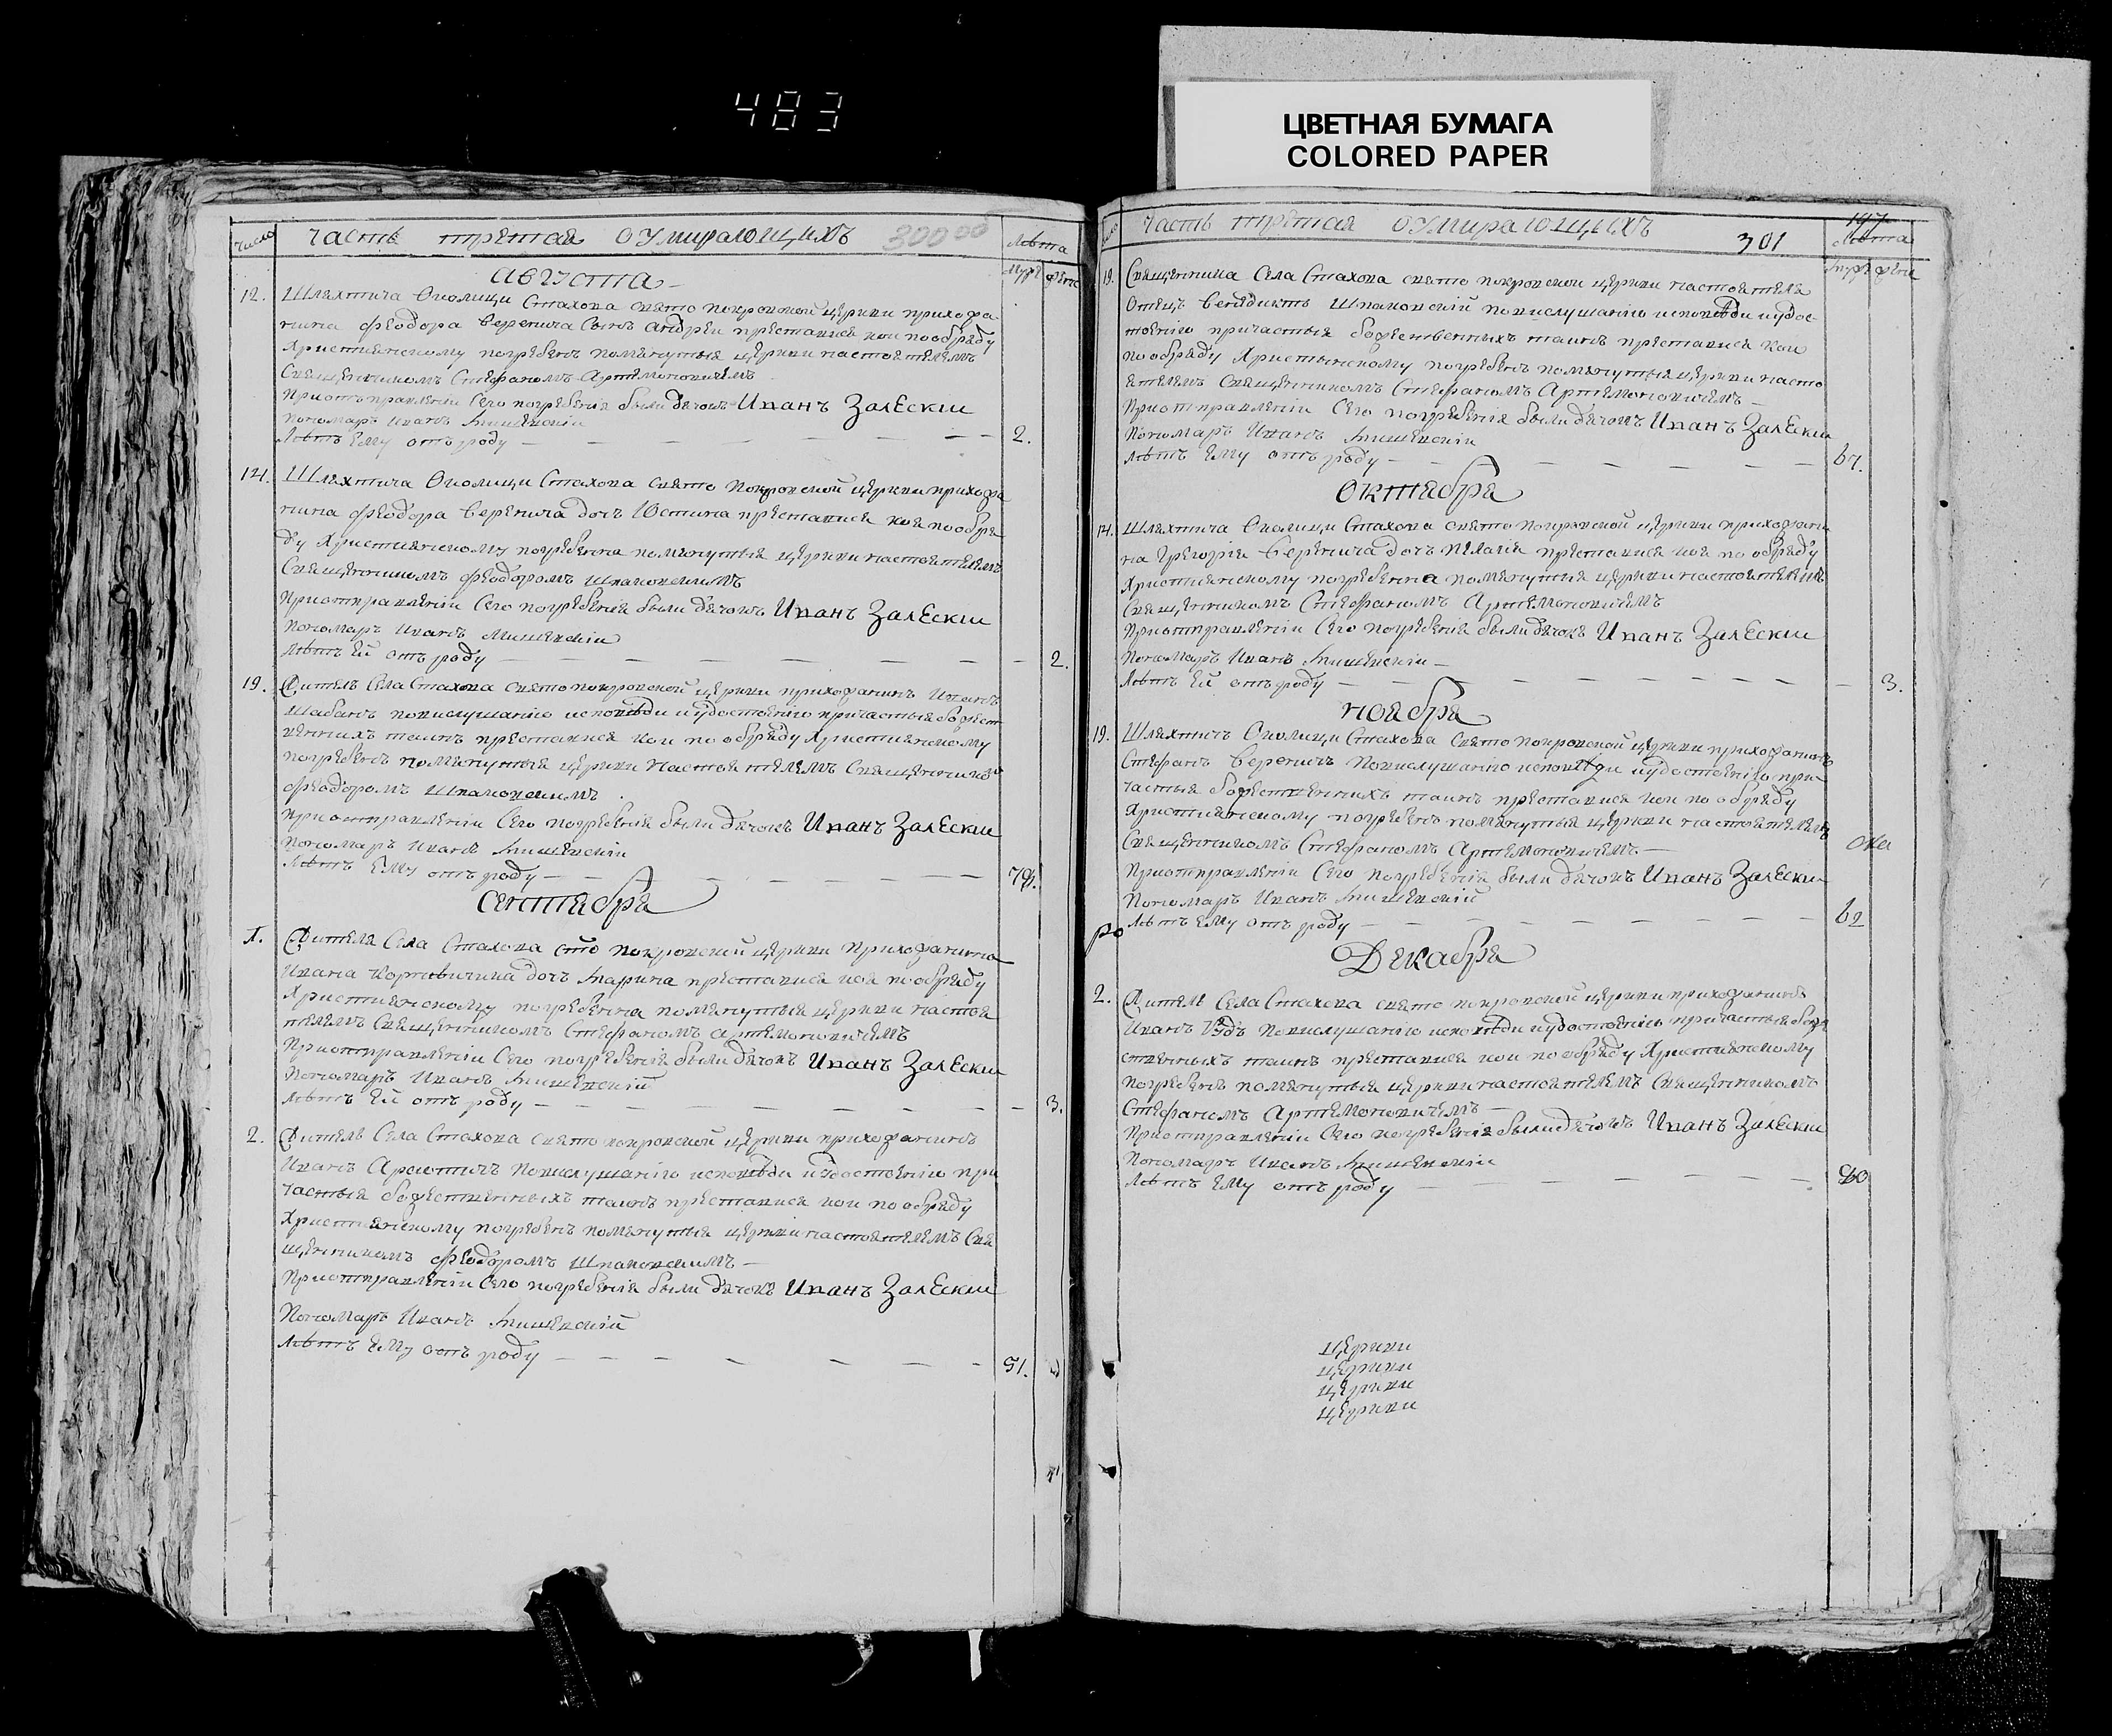 483
ЦВЕТНАЯ БУМАГА
COLORED PAPER
число
часть третая о умирающихъ
300
лѣта
муж
жен
августа
12. Шляхтича Околици Стахова свято покровской церкви прихожа
нина Феодора Веренича сынъ Андрей преставися кои по обряду
Християнскому погребенъ помянутыя церкви настоятелемъ
Священникомъ Стефаномъ Артемоновичемъ
При отправленіи Сего погребенія были дячокъ Иванъ Залескии
пономарь Иванъ Мишевскіи
Лѣтъ Ему отъ роду 2.
14. Шляхтича Околици Стахова свято покровской церкви прихожа
нина Феодора Веренича дочъ Юстина преставися коя по обря
ду Християнскому погребенна помянутыя церкви настоятелемъ
Священникомъ Феодоромъ
При отправленіи Сего погребенія были дячокъ Иванъ Залескии
пономарь Иванъ Мишевскіи
Лѣтъ Ей отъ роду 2.
19. Жителъ Села Стахова свято покровской церкви прихожанинъ Иванъ
Шабанъ по выслушанію исповѣди и удостоенію причастыя божест
венныхъ таинъ преставися кои по обряду Християнскому
погребенъ помянутыя церкви настоятелемъ Священникомъ
Феодоромъ
При отправленіи Сего погребенія были дячокъ Иванъ Залескии
пономарь Иванъ Мишевскіи
Лѣтъ Ему отъ роду
Сентября
1. Жителя Села Стахова сто покровской церкви прихожанина
Ивана дочъ Марина преставися коя по обряду
Християнскому погребенна помянутыя церкви настоя
телемъ Священникомъ Стефаномъ Артемоновичемъ
При отправленіи Сего погребенія были дячокъ Иванъ Залескии
пономарь Иванъ Мишевскій
Лѣтъ Ей отъ роду 3.
2. Жителъ Села Стахова свято покровской церкви прихожанинъ
Иванъ по выслушанію исповѣди и удостоенію при
частыя божественныхъ таинъ преставися кои по обряду
Християнскому погребенъ помянутыя церкви настоятелемъ Свя
щенникомъ Феодоромъ
При отправленіи Сего погребенія были дячокъ Иванъ Залескии
Пономарь Иванъ Мишевскій
Лѣтъ Ему отъ роду 51.
часть третая о умирающихъ
301
лѣта
муж жен
19. Священника Села Стахова свято покровской церкви настоятеля
отецъ Венедиктъ по выслушанію исповѣди и удос
тоенію причастыя божественныхъ таинъ преставися кои
по обряду Християнскому погребенъ помянутыя церкви насто
ятелемъ Священникомъ Стефаномъ Артемоновичемъ
При отправленіи Сего погребенія были дячокъ Иванъ Залескии
пономарь Иванъ Мишевскіи
Лѣтъ Ему отъ роду 67.
Октября
14. Шляхтича Околици Стахова свято покровской церкви прихожани
на Григорія Веренича дочъ Пелагія преставися коя по обряду
Християнскому погребенна помянутыя церкви настоятелемъ
Священникомъ Стефаномъ Артемоновичемъ
При отправленіи Сего погребенія были дячокъ Иванъ Залескии
Пономарь Иванъ Мишевскіи
Лѣтъ Ей отъ роду 3.
ноября
19. Шляхтичъ Околици Стахова свято покровской церкви прихожанинъ
Стефанъ Вереничъ по выслушанію исповѣди и удостоенію при
частыя божественныхъ таинъ преставися кои по обряду
Християнскому погребенъ помянутыя церкви настоятелемъ
Священникомъ Стефаномъ Артемоновичемъ
При отправленіи Сего погребенія были дячокъ Иванъ Залескии
пономарь Иванъ Мишевскій
Лѣтъ Ему отъ роду 62
Декабря
2. Жителъ Села Стахова свято покровской церкви прихожанинъ
Иванъ по выслушанію исповѣди и удостоенію причастыя боже
ственныхъ таинъ преставися кои по обряду Християнскому
погребенъ помянутыя церкви настоятелемъ Священникомъ
Стефаномъ Артемоновичемъ
При отправленіи Сего погребенія были дячокъ Иванъ Залескии
пономарь Иванъ Мишевскіи
Лѣтъ Ему отъ роду
церкви
церкви
церкви
церкви